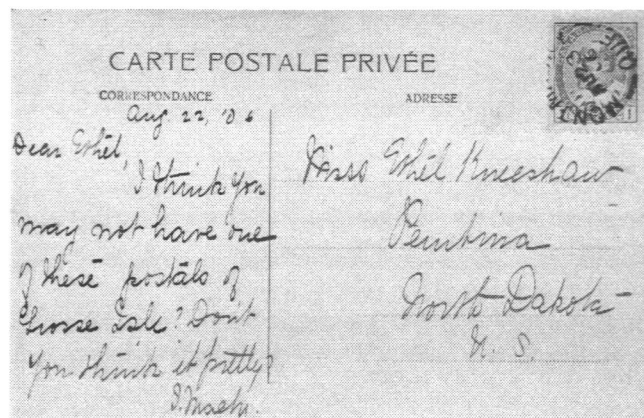 CARTE POSTALE PRIVÉE
CORRESPONDANCE
ADRESSE
Aug 22, '06
Dear Ethel,
I think you
may not have one
of these postals of
Isle? Don't
you think it pretty?
Miss Ethel Kneeshaw
Pembina
North Dakota
U. S.